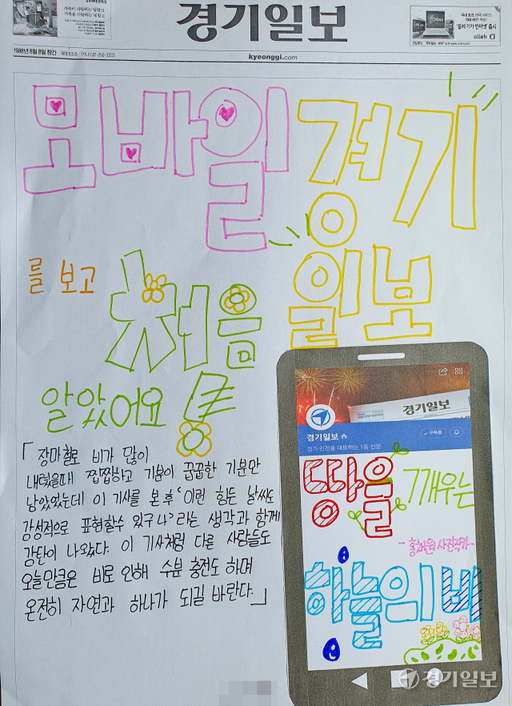 경기일보
kyeonggi.com
1988년 8월 8일 창간
olleh
모바일 경기
를 보고
처음 일보
알았어요
「장마철로 비가 많이
내렸을때 찝찝하고 기분이 꿉꿉한 기분만
남았었는데 이 기사를 본 후 '이런 힘든 날씨도
감성적으로 표현할수 있구나' 라는 생각과 함께
감탄이 나왔다. 이 기사처럼 다른 사람들도
오늘만큼은 비로 인해 수분 충전도 하며
온전히 자연과 하나가 되길 바란다.」
경기일보
경기일보
경기·인천을 대표하는 1등 신문
구독중
땅을 깨우는
사진작가
하늘의 비
경기일보